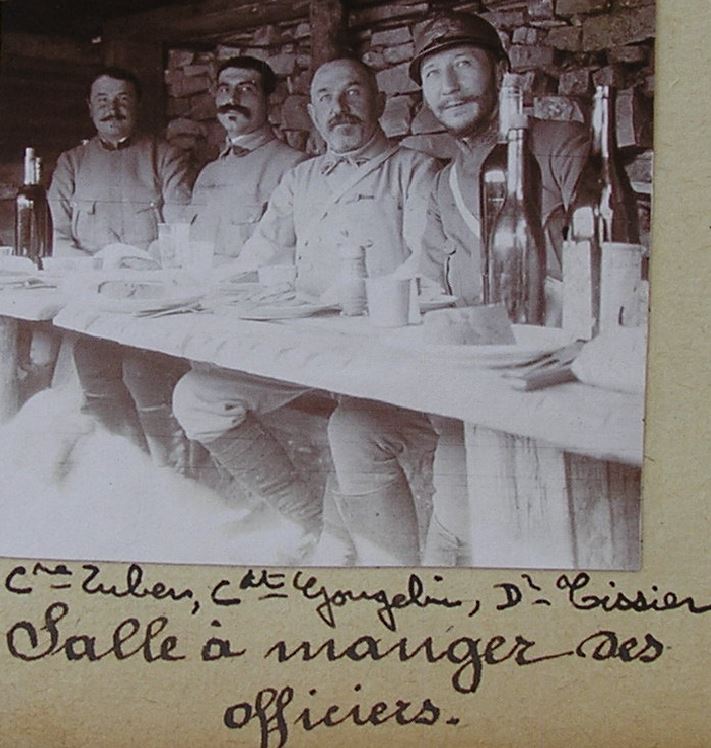 Cne Zuber, Cdt Gougelin, Dr Tissier
Salle à manger des
officiers.